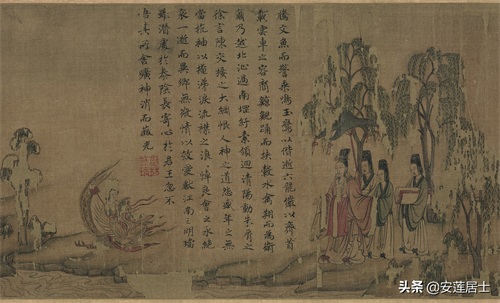 騰文魚而警乘鳴玉鸞以偕逝六龍儼以齊首
載雲車之容裔鯨鯢踊而挾轂水禽翔而為衛
爾乃越北沚過南岡紆素領迴清陽動朱脣之
徐言陳交接之大綱恨人神之道殊怨盛年之無
當抗袖以掩涕淚流襟之浪浪悼良會之永絕
哀一逝而異鄉無微情以效愛獻江南之明璫
雖潛處於泰陰長寄心於君王忽不
悟其所舍曠神消而蔽光
头条 @安莲居士